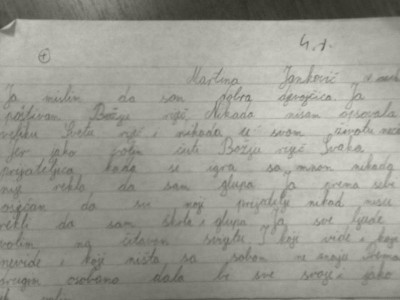 4. r.
Martina Janković
Ja mislim da sam dobra djevojčica Ja
poštivam Božju riječ, Nikada nisam opsovala
veliku Svetu riječ i nikada u svom životu neću
Jer jako volim čuti Božju riječ Svaka
prijateljica kada se igra sa mnom nikada
nije rekla da sam glupa Ja prema sebe
osjećam da su moji prijatelji nikad nisu
rekli da sam škrta i glupa Ja sve ljude
volim na čitavom svijetu i koji vide i koji
nevide i koji ništa sa sobom ne znaju
drugim osobama dala bi sve svoje jako